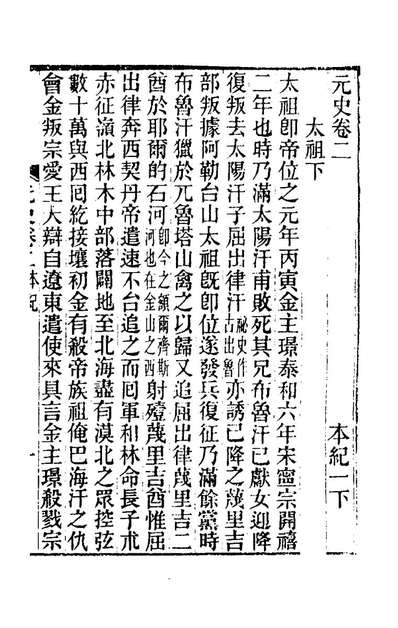 元史卷二　本紀一下
太祖下
太祖卽帝位之元年丙寅金主璟泰和六年宋寧宗開禧
二年也時乃滿太陽汗甫敗死其兄布魯汗已獻女迎降
復叛去太陽汗子屈出律汗祕史作古出魯亦誘已降之蔑里吉
部叛據阿勒台山太祖旣卽位遂發兵復征乃滿餘黨時
布魯汗獵於兀魯塔山禽之以歸又追屈出律蔑里吉二
酋於耶爾的石河卽今之額爾齊斯河也在金山之西射殪蔑里吉酋惟屈
出律奔西契丹帝遣速不台追之而回軍和林命長子朮
赤征嶺北林木中部落闢地至北海盡有漠北之眾控弦
數十萬與西囘紇接壤初金有殺帝族祖俺巴海汗之仇
會金叛宗愛王大辯自遼東遣使來具言金主璟殺戮宗
元史卷二本紀　一